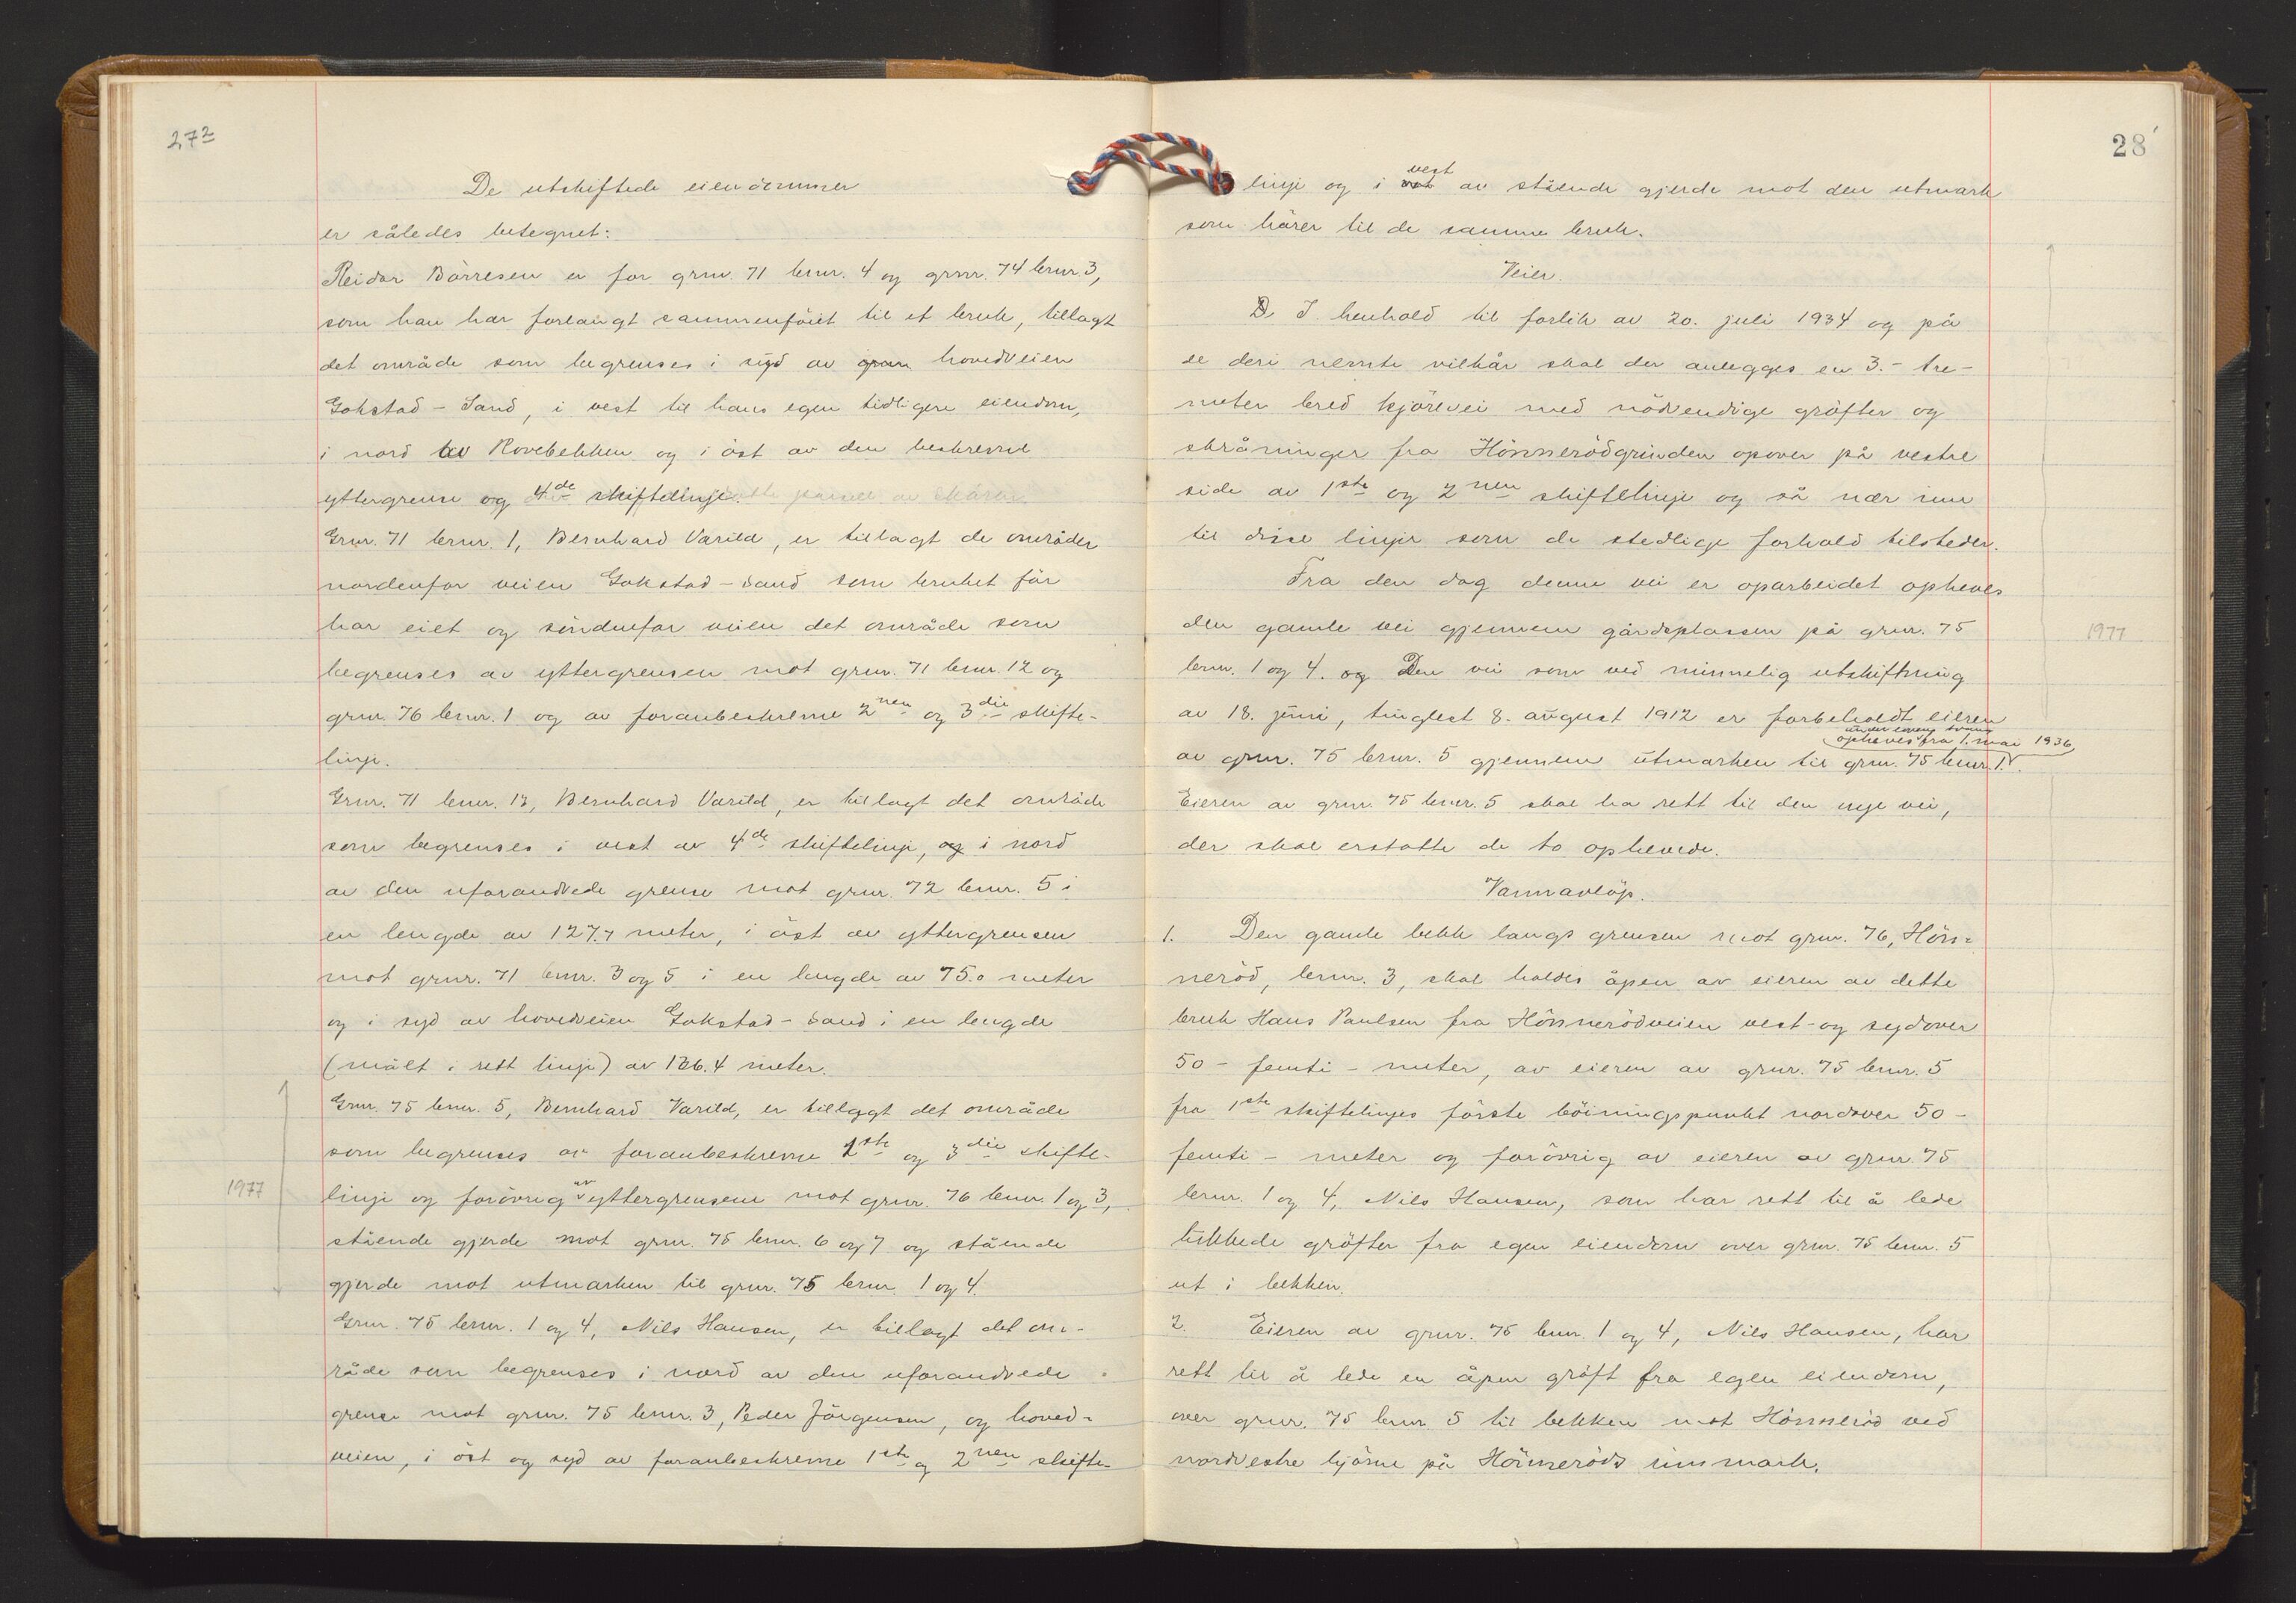 27²
De utskiftede eiendommer
er således betegnet:
Reidar Börresen er for grnr. 71 brnr. 4 og grnr. 74 brnr. 3,
som han har forlangt sammenföiet til et bruk, tillagt
det område som begrenses i syd av hovedveien
Gokstad - Sand, i vest til hans egen tidligere eiendom,
i nord av Rovebekken og i öst av den beskrevne
yttergrense og 4de skiftelinje.
Grnr. 71 brnr. 1, Bernhard Varild, er tillagt de områder
nordenfor veien Gokstad - Sand som bruket för
har eiet og söndenfor veien det område som
begrenses av yttergrensen mot grnr. 71 brnr. 12 og
grnr. 76 brnr. 1 og av foranbeskrevne 2nen og 3die skifte-
linje.
Grnr. 71 brnr. 13, Bernhard Varild, er tillagt det område
som begrenses i vest av 4de skiftelinje, og i nord
av den uforandrede grense mot grnr. 72 brnr. 5 i
en lengde av 127.7 meter, i öst av yttergrensen
mot grnr. 71 brnr. 3 og 5 i en lengde av 75.0 meter
og i syd av hovedveien Gokstad - Sand i en lengde
(målt i rett linje) av 136.4 meter.
Grnr. 75 brnr. 5, Bernhard Varild, er tillagt det område
som begrenses av foranbeskrevne 1ste og 3die skifte-
1977
linje og forövrig av yttergrensene mot grnr. 76 brnr. 1 og 3,
stående gjerde mot grnr. 75 brnr. 6 og 7 og stående
gjerde mot utmarken til grnr. 75 brnr. 1 og 4.
Grnr. 75 brnr. 1 og 4, Nils Hansen, er tillagt det om-
råde som begrenses i nord av den uforandrede
grense mot grnr. 75 brnr. 3, Peder Jörgensen, og hoved-
veien, i öst og syd av foranbeskrevne 1ste og 2nen skifte-
28
linje og i vest av stående gjerde mot den utmark
som hörer til de samme bruk.
Veier.
I henhold til forlik av 20. juli 1934 og på
de deri nevnte vilkår skal der anlegges en 3.- tre-
meter bred kjörevei med nödvendige gröfter og
skråninger fra Hönnerödgrinden opover på vestre
side av 1ste og 2nen skiftelinje og så nær inn
til disse linjer som de stedlige forhold tilsteder.
Fra den dag denne vei er oparbeidet opheves
den gamle vei gjennem gårdsplassen på grnr. 75
1977
brnr. 1 og 4. og Den vei som ved minnelig utskiftning
av 18. juni, tinglest 8. august 1912 er forbeholdt eieren
opheves under enhver fra 1. mai 1936
av grnr. 75 brnr. 5 gjennem utmarken til grnr. 75 brnr. 1.
Eieren av grnr. 75 brnr. 5 skal ha rett til den nye vei,
der skal erstatte de to ophevede.
Vannavlöp.
1. Den gamle bekk langs grensen mot grnr. 76, Hön-
neröd, brnr. 3, skal holdes åpen av eieren av dette
bruk Hans Paulsen fra Hönnerödveien vest- og sydover
50 - femti - meter, av eieren av grnr. 75 brnr. 5
fra 1ste skiftelinjes förste böiningspunkt nordover 50 -
femti - meter og forövrig av eieren av grnr. 75
brnr. 1 og 4, Nils Hansen, som har rett til å lede
lukkede gröfter fra egen eiendom over grnr. 75 brnr. 5
ut i bekken.
2. Eieren av grnr. 75 brnr. 1 og 4, Nils Hansen, har
rett til å lede en åpen gröft fra egen eiendom,
over grnr. 75 brnr. 5 til bekken mot Hönneröd ved
nordvestre hjörne på Hönneröds innmark.